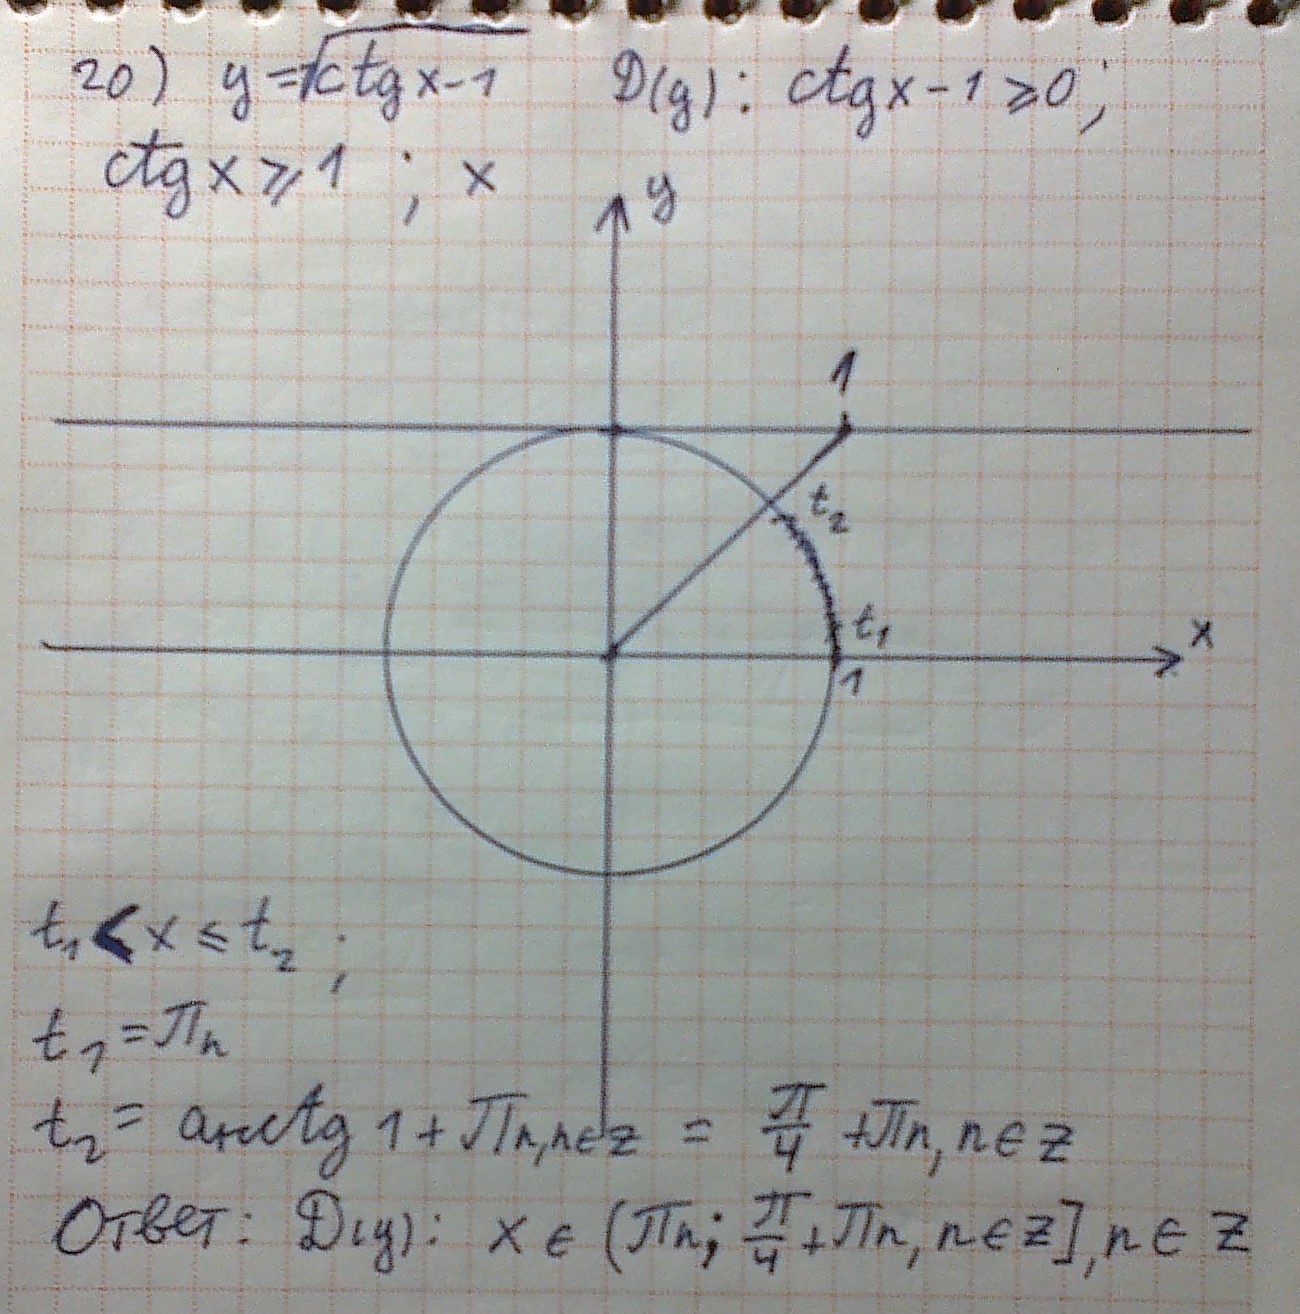 20) y=√ctgx-1 D(y): ctgx-1⩾0;
ctgx⩾1 ; x
y
1
t₂
t₁
x
1
t₁<x⩽t₂;
t₁=Пn
t₂= arcctg1+Пn,n∈z = П/4 +Пn,n∈z
Ответ: D(y): x∈(Пn; П/4+Пn,n∈z],n∈z